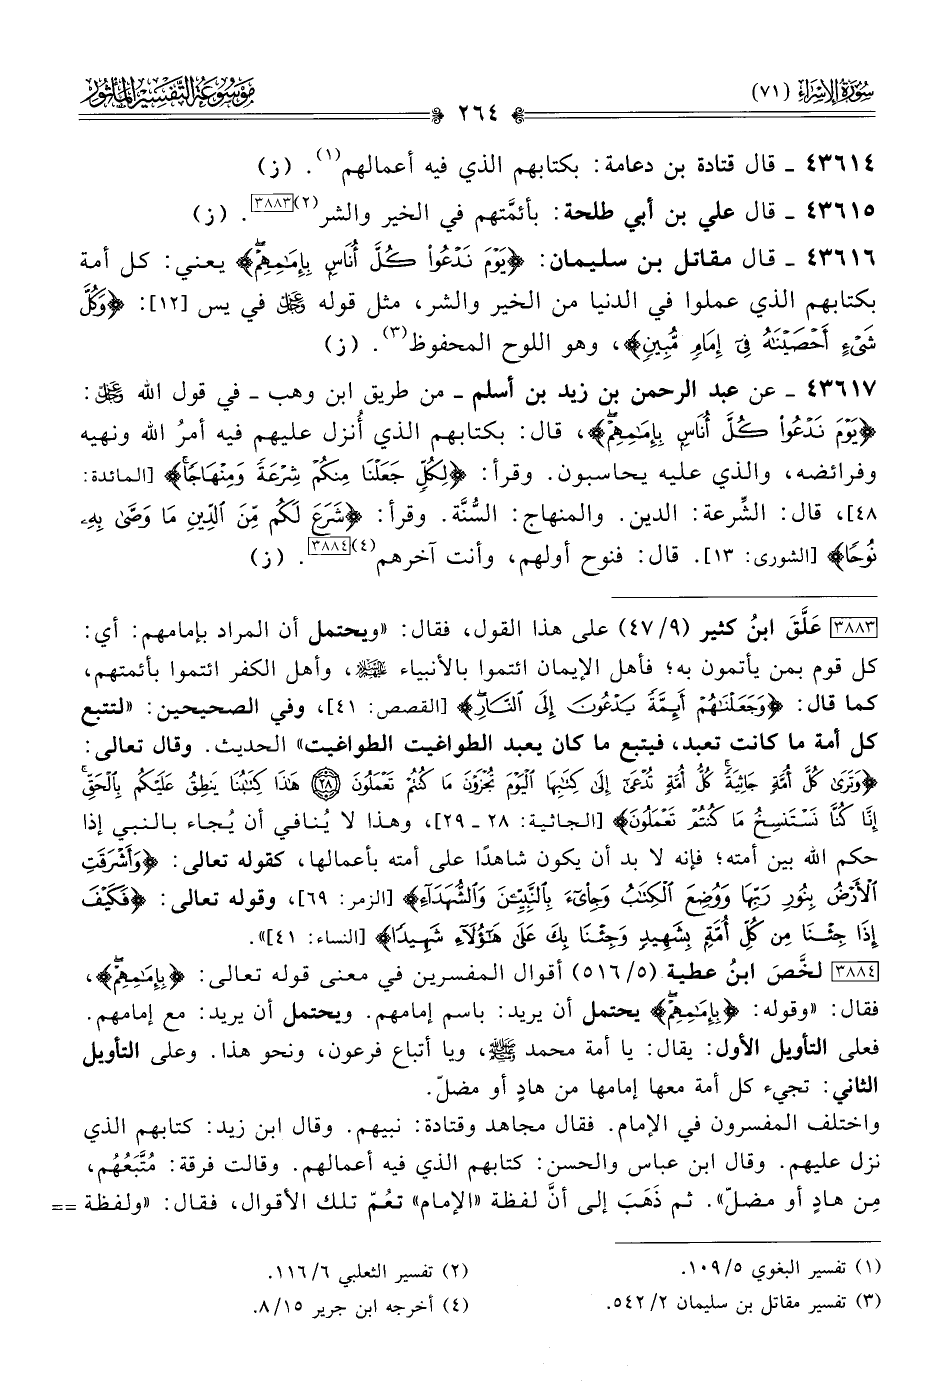 سُورَةُ الإِسْرَاء (٧١)
٢٦٤
مَوْسُوعَةُ التَّفْسِيرِ المَأْثُورِ
٤٣٦١٤ ـ قال قتادة بن دعامة: بكتابهم الذي فيه أعمالهم(١). (ز)
٤٣٦١٥ ـ قال علي بن أبي طلحة: بأئمَّتهم في الخير والشر(٢)[٣٨٨٣]. (ز)
٤٣٦١٦ ـ قال مقاتل بن سليمان: ﴿يَوْمَ نَدْعُواْ كُلَّ أُنَاسٍ بِإِمَٰمِهِمْۖ﴾ يعني: كل أمة
بكتابهم الذي عملوا في الدنيا من الخير والشر، مثل قوله ﷿ في يس [١٢]: ﴿وَكُلَّ
شَيْءٍ أَحْصَيْنَٰهُ فِيٓ إِمَامٖ مُّبِينٖ﴾، وهو اللوح المحفوظ(٣). (ز)
٤٣٦١٧ ـ عن عبد الرحمن بن زيد بن أسلم ـ من طريق ابن وهب ـ في قول الله ﷿:
﴿يَوْمَ نَدْعُواْ كُلَّ أُنَاسٍ بِإِمَٰمِهِمْۖ﴾، قال: بكتابهم الذي أُنزل عليهم فيه أمرُ الله ونهيه
وفرائضه، والذي عليه يحاسبون. وقرأ: ﴿لِكُلّٖ جَعَلْنَا مِنكُمْ شِرْعَةٗ وَمِنْهَاجٗاۚ﴾ [المائدة:
٤٨]، قال: الشِّرعة: الدين. والمنهاج: السُّنَّة. وقرأ: ﴿شَرَعَ لَكُم مِّنَ ٱلدِّينِ مَا وَصَّىٰ بِهِۦ
نُوحٗا﴾ [الشورى: ١٣]. قال: فنوح أولهم، وأنت آخرهم(٤)[٣٨٨٤]. (ز)
[٣٨٨٣] عَلَّقَ ابنُ كثير (٩/ ٤٧) على هذا القول، فقال: «ويحتمل أن المراد بإمامهم: أي:
كل قوم بمن يأتمون به؛ فأهل الإيمان ائتموا بالأنبياء ﵈، وأهل الكفر ائتموا بأئمتهم،
كما قال: ﴿وَجَعَلْنَٰهُمْ أَئِمَّةٗ يَدْعُونَ إِلَى ٱلنَّارِۖ﴾ [القصص: ٤١]، وفي الصحيحين: «لتتبع
كل أمة ما كانت تعبد، فيتبع ما كان يعبد الطواغيت الطواغيت» الحديث. وقال تعالى:
﴿وَتَرَىٰ كُلَّ أُمَّةٖ جَاثِيَةٗۚ كُلُّ أُمَّةٖ تُدْعَىٰٓ إِلَىٰ كِتَٰبِهَا ٱلْيَوْمَ تُجْزَوْنَ مَا كُنتُمْ تَعْمَلُونَ (٢٨) هَٰذَا كِتَٰبُنَا يَنطِقُ عَلَيْكُم بِٱلْحَقِّۚ
إِنَّا كُنَّا نَسْتَنسِخُ مَا كُنتُمْ تَعْمَلُونَ﴾ [الجاثية: ٢٨ ـ ٢٩]، وهذا لا يُنافي أن يُجاء بالنبي إذا
حكم الله بين أمته؛ فإنه لا بد أن يكون شاهدًا على أمته بأعمالها، كقوله تعالى: ﴿وَأَشْرَقَتِ
ٱلْأَرْضُ بِنُورِ رَبِّهَا وَوُضِعَ ٱلْكِتَٰبُ وَجِاْيٓءَ بِٱلنَّبِيِّـۧنَ وَٱلشُّهَدَآءِ﴾ [الزمر: ٦٩]، وقوله تعالى: ﴿فَكَيْفَ
إِذَا جِئْنَا مِن كُلِّ أُمَّةِۭ بِشَهِيدٖ وَجِئْنَا بِكَ عَلَىٰ هَٰٓؤُلَآءِ شَهِيدٗا﴾ [النساء: ٤١]».
[٣٨٨٤] لخَّصَ ابنُ عطية (٥/ ٥١٦) أقوال المفسرين في معنى قوله تعالى: ﴿بِإِمَٰمِهِمْۖ﴾،
فقال: «وقوله: ﴿بِإِمَٰمِهِمْۖ﴾ يحتمل أن يريد: باسم إمامهم. ويحتمل أن يريد: مع إمامهم.
فعلى التأويل الأول: يقال: يا أمة محمد ﷺ، ويا أتباع فرعون، ونحو هذا. وعلى التأويل
الثاني: تجيء كل أمة معها إمامها من هادٍ أو مضلّ.
واختلف المفسرون في الإمام. فقال مجاهد وقتادة: نبيهم. وقال ابن زيد: كتابهم الذي
نزل عليهم. وقال ابن عباس والحسن: كتابهم الذي فيه أعمالهم. وقالت فرقة: مُتَّبَعُهُم،
مِن هادٍ أو مضلّ». ثم ذَهَبَ إلى أنَّ لفظة «الإمام» تعُمّ تلك الأقوال، فقال: «ولفظة ==
(١) تفسير البغوي ٥/ ١٠٩.
(٢) تفسير الثعلبي ٦/ ١١٦.
(٣) تفسير مقاتل بن سليمان ٢/ ٥٤٢.
(٤) أخرجه ابن جرير ١٥/ ٨.